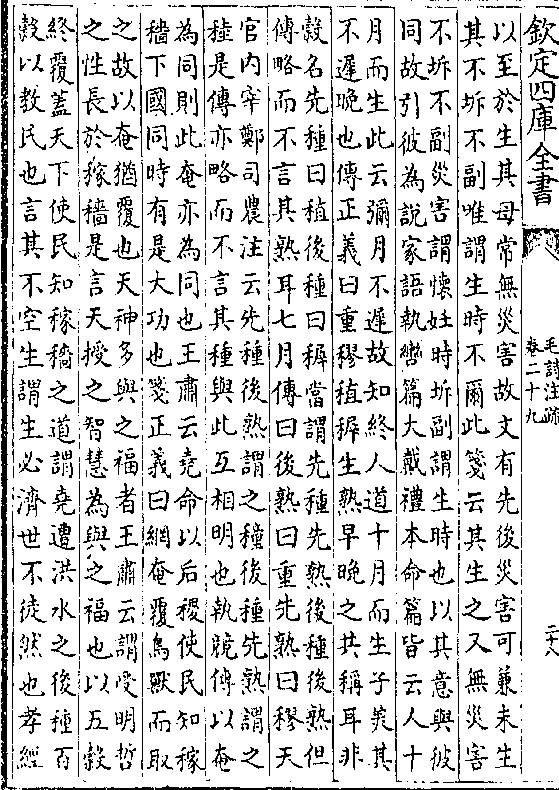 欽定四庫全書
毛詩注疏
卷二十九
二十八
以至於生其母常無災害故文有先後災害可兼未生
其不坼不副唯謂生時不爾此箋云其生之又無災害
不坼不副災害謂懷妊時坼副謂生時也以其意與彼
同故引彼為說家語執轡篇大戴禮本命篇皆云人十
月而生此云彌月不遲故知終人道十月而生子美其
不遲晚也傳正義曰重穋稙穉生熟早晚之其稱耳非
穀名先種曰稙後種曰穉當謂先種先熟後種後熟但
傳略而不言其熟耳七月傳曰後熟曰重先熟曰穋天
官内宰鄭司農注云先種後熟謂之穜後種先熟謂之
稑是傳亦略而不言其種與此互相明也執競傳以奄
為同則此奄亦為同也王肅云堯命以后稷使民知稼
穡下國同時有是大功也箋正義曰網奄覆鳥獸而取
之故以奄猶覆也天神多與之福者王肅云謂受明哲
之性長於稼穡是言天授之智慧為與之福也以五穀
終覆蓋天下使民知稼穡之道謂堯遭洪水之後種百
穀以教民也言其不空生謂生必濟世不徒然也孝經